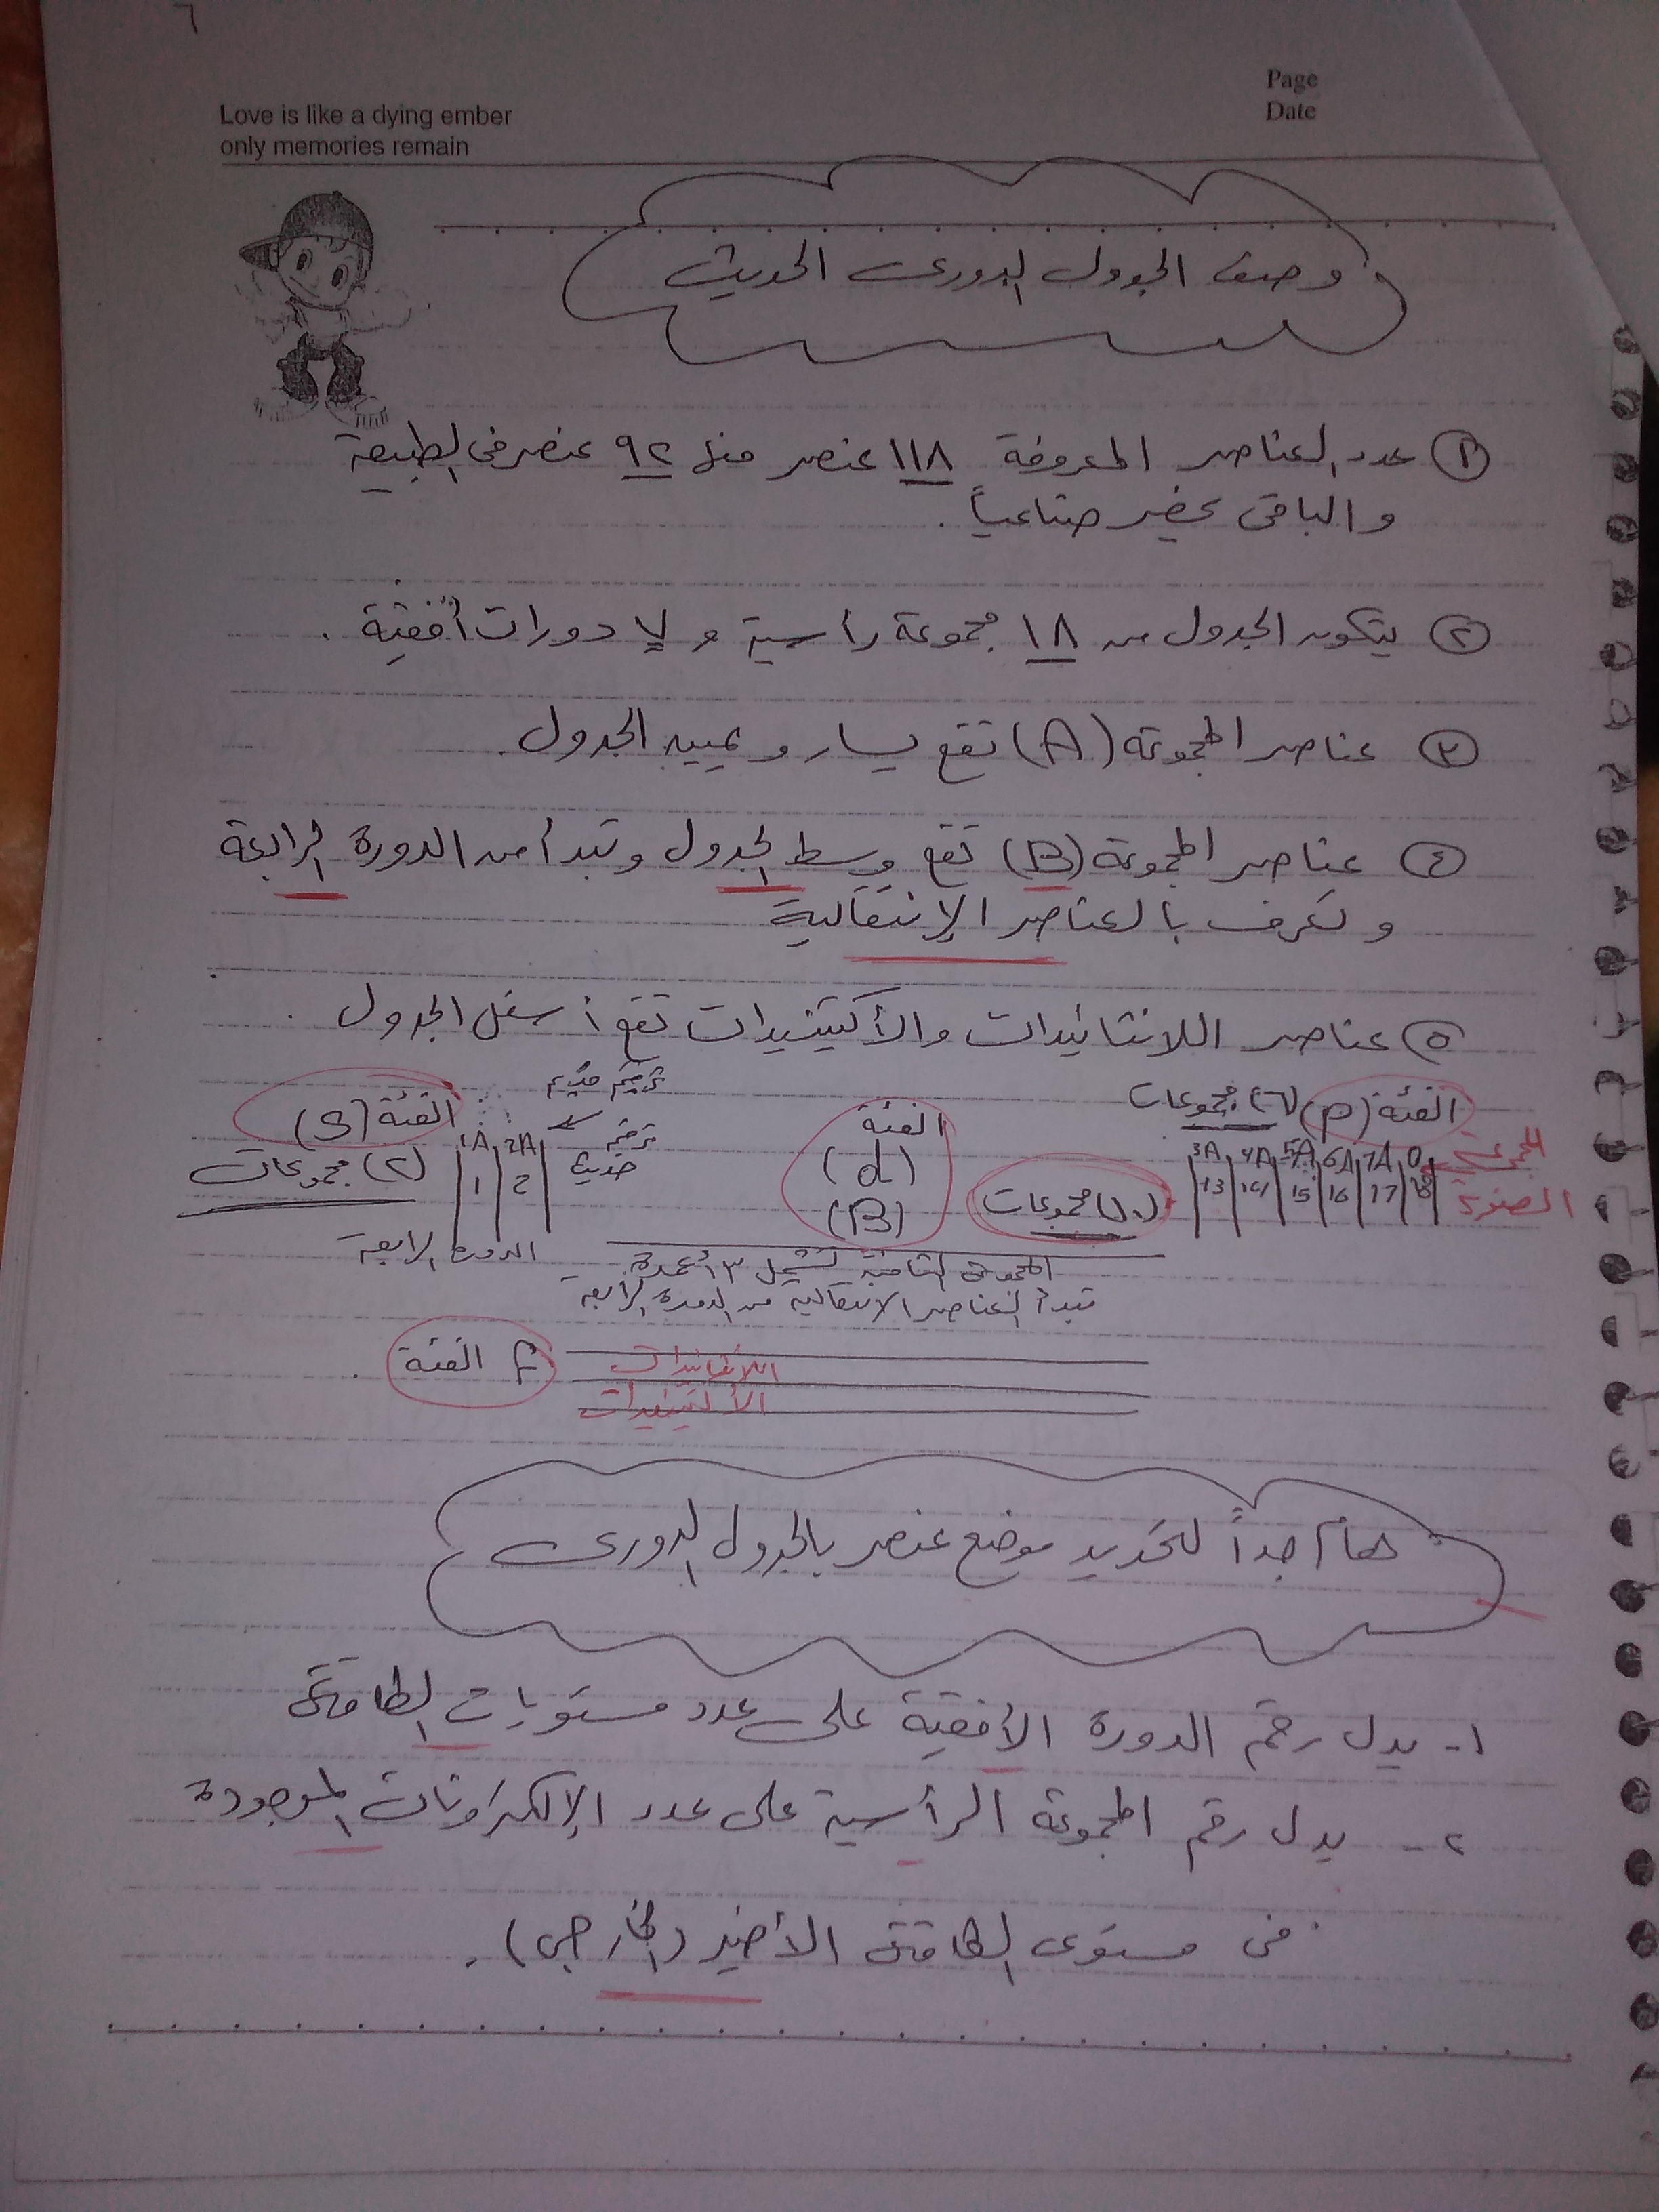 ٦
Page
Date
Love is like a dying ember
only memories remain
وصف الجدول الدورى الحديث
① عدد العناصر المعروفة ١١٨ عنصر منها ٩٢ عنصر فى الطبيعة
والباقى يحضر صناعياً .
② يتكون الجدول من ١٨ مجموعة رأسية و ٧ دورات أفقية .
③ عناصر المجموعة (A) تقع يسار و يمين الجدول .
④ عناصر المجموعة (B) تقع وسط الجدول وتبدأ من الدورة الرابعة
وتعرف بالعناصر الإنتقالية
⑤ عناصر اللانثانيدات والأكتينيدات تقع أسفل الجدول .
الفئة (P) (٦) مجموعات
3A 4A 5A 6A 7A 0
13 14 15 16 17 18
المجموعة
الصفرية
الفئة
(d)
(B)
(١٠) مجموعات
ترقيم قديم
ترقيم
حديث
الفئة (S)
1A 2A
1 2
(٢) مجموعات
الدورة الرابعة
المجموعة الثامنة تشمل ٣ أعمدة
تبدأ العناصر الانتقالية من الدورة الرابعة
الفئة f
اللانثانيدات
الأكتينيدات
هام جداً لتحديد موضع عنصر بالجدول الدورى
١- يدل رقم الدورة الأفقية على عدد مستويات الطاقة
٢- يدل رقم المجموعة الرأسية على عدد الإلكترونات الموجودة
فى مستوى الطاقة الأخير (الخارجى) .